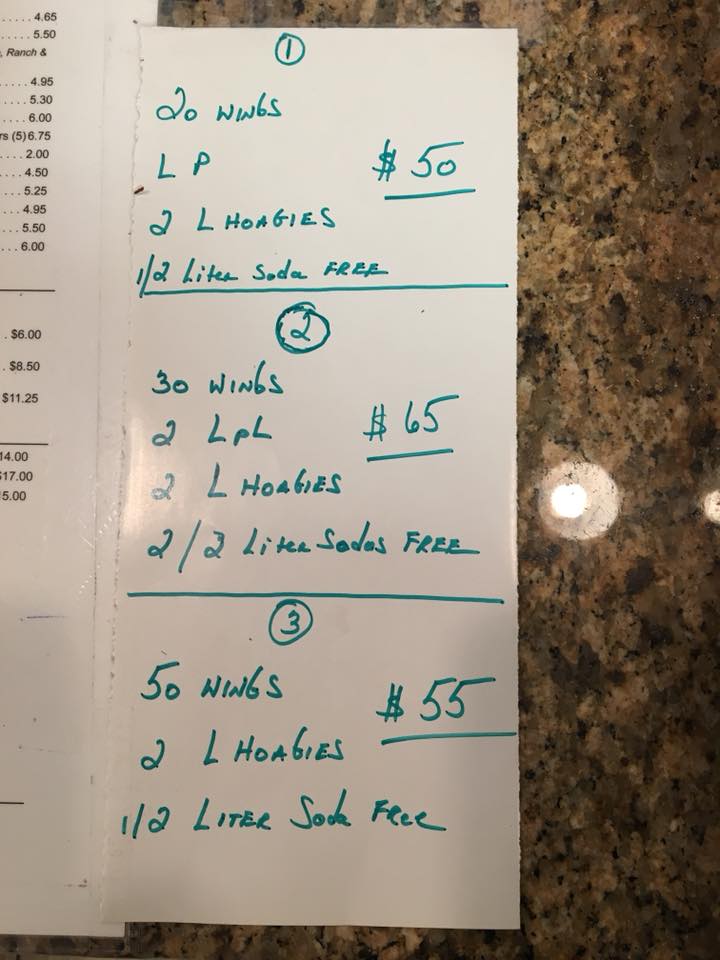 .....4.65
.....5.50
, Ranch &
.....4.95
....5.30
....6.00
rs (5)6.75
....2.00
....4.50
....5.25
....4.95
...5.50
...6.00
. $6.00
. $8.50
$11.25
14.00
$17.00
5.00
1
20 WINGS
L P $50
2 L HOAGIES
1/2 Liter Soda FREE
2
30 WINGS
2 LPL $65
2 L HOAGIES
2/2 Liter Sodas FREE
3
50 WINGS $55
2 L HOAGIES
1/2 LITER Soda Free